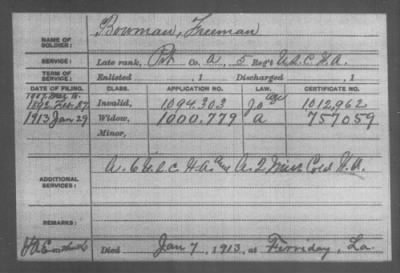 NAME OF SOLDIER: Bowman, Freeman
SERVICE: Late rank, Pvt Co. A, 5 Reg't U.S.C.H.A.
TERM OF SERVICE: Enlisted , 1 Discharged , 1
DATE OF FILING. CLASS. APPLICATION NO. LAW. CERTIFICATE NO.
1907 Mar 11.
1892 Feb. 27 Invalid, 1094.303 age 1012,962
1913 Jan 29 Widow, 1000.779 a 757059
Minor,
ADDITIONAL SERVICES: A. 6 U.S.C. H.A. and A. 2 Miss Cold H.A.
REMARKS:
Died Jan 7, 1913, at Ferriday, La.